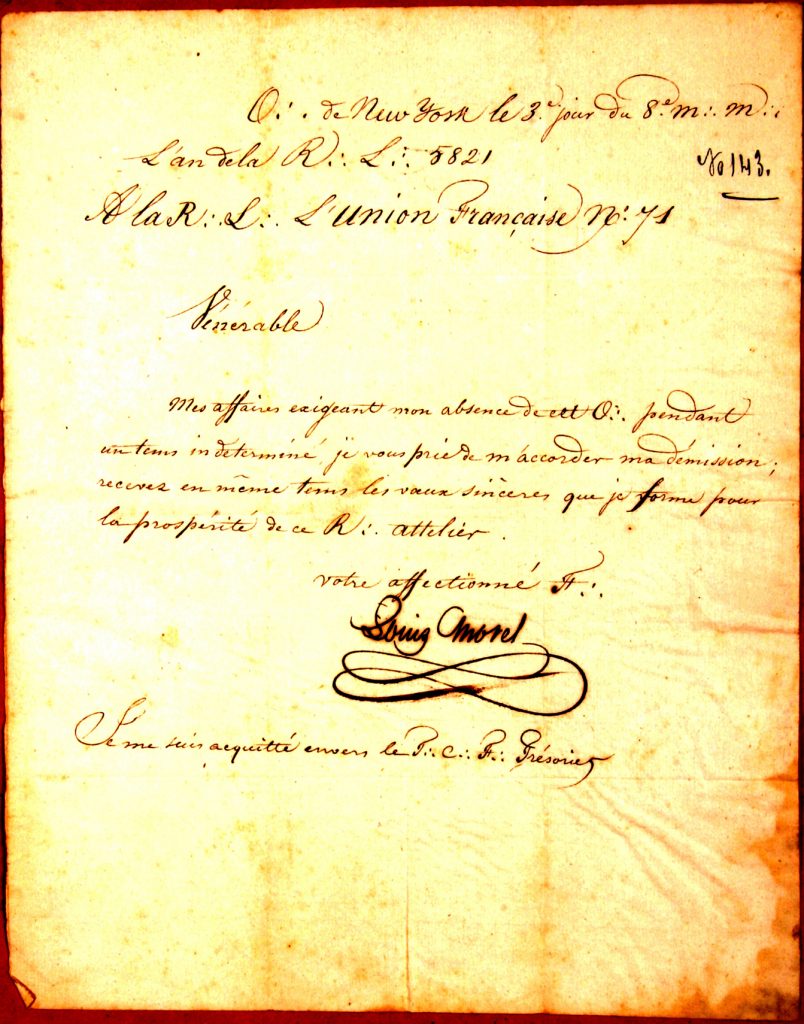 O∴ de New York le 3.e jour du 8.e m∴ m∴
L'an de la R∴ L∴ 5821
No 143.
A la R∴ L∴ L'Union Française N.o 71
Vénérable
Mes affaires exigeant mon absence de cet O∴ pendant
un tems indeterminé, je vous prie de m'accorder ma démission;
recevez en même tems les vœux sincères que je forme pour
la prospérité de ce R∴ attelier.
votre affectionné F∴
Louis Morel
Je me suis acquitté envers le T∴ C∴ F∴ Trésorier